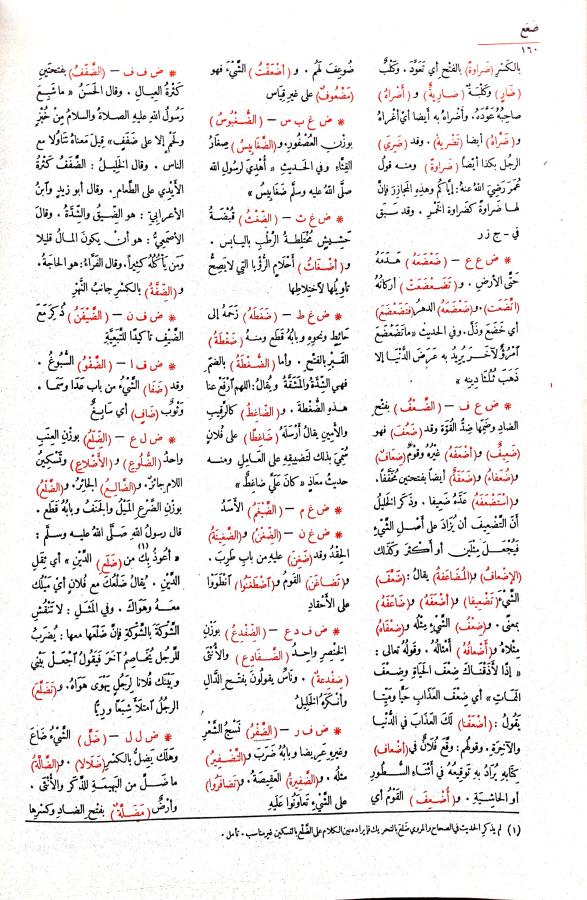 ضعع
١٦٠
بالكَسْرِ (ضَراوةً) بالفَتْح أي تَعَوَّد . وكَلْبٌ
(ضَارٍ) وكَلْبَةٌ (ضارِيةٌ) و(أَضْراهُ)
صاحِبُهُ عَوَّدَهُ. وأَضْراهُ به أيضا أيْ أغْراهُ
و(ضَرَّاهُ) أيضا (تَضْرِيَةً) . وقد (ضَرِيَ)
الرجُل بكذا أيضًا (ضَراوةً) ومنه قول
عُمَرَ رَضِيَ اللهُ عنهُ: إيَّاكُمْ وهذِهِ المَجازِرَ فإنَّ
لها ضَراوةً كَضَراوة الخَمْر. وقد سبق
في - ج زر
* ض ع ع – (ضَعْضَعَهُ) هَدَمَهُ
حَتَّى الأرْضِ . و(تَضَعْضَعَت) أركانُهُ
اتَّضَعَت). و(ضَعْضَعَهُ) الدهرُ (فَتَضَعْضَعَ)
أي خَضَعَ وَذَلَّ. وفي الحديث «ماتَضَعْضَعَ
امْرُؤٌ لآخَرَ يُرِيدُ به عَرَضَ الدُّنْيا إلا
ذَهَبَ ثُلُثَا دِينِهِ»
* ض ع ف – (الضَّعْفُ) بفتح
الضاد وضَمِّها ضِدُّ القُوّة وقد (ضَعُفَ) فهو
(ضَعِيفٌ) و(أضْعَفَهُ) غيرُهُ وقومٌ (ضِعافٌ)
و(ضُعَفاءُ) و(ضَعَفَةٌ) أيضا بفتحتين مُخَفَّفًا.
و(اسْتَضْعَفَهُ) عَدَّهُ ضَعِيفا . وذَكَر الخَلِيلُ
أنَّ التَّضْعِيفَ أن يُزَادَ على أَصْلِ الشَّيْءِ
فيُجْعَلَ مِثْلَيْنِ أو أكثَرَ وكذلك
(الإضْعافُ) و(المُضَاعَفَةُ) يقال: (ضَعَّفَ)
الشَّيْءَ (تَضْعِيفا) و(أضْعَفَهُ) و(ضَاعَفَهُ)
بمعنًى . و(ضِعْفُ) الشَّيْءِ مِثْلُه و(ضِعْفاهُ)
مِثْلاهُ و(أَضْعافُهُ) أَمْثالُهُ . وقَوْلُه تعالى :
« إذًا لأَذَقْناكَ ضِعْفَ الحَيَاةِ وضِعْفَ
المَمَاتِ » أي ضِعْفَ العَذَابِ حَيًّا ومَيِّتا
يقُولُ: (أضْعَفْنا) لَكَ العَذابَ في الدُّنْيا
والآخِرَةِ. وقولهم : وقّعَ فُلانٌ في (أضْعاف)
كتابِهِ يُرَادُ به تَوقِيعُهُ في أَثْناءِ السُّطُورِ
أو الحاشِيَةِ . و(أُضْعِفَ) القَوْمُ أي
ضُوعِفَ لَهُم . و(أَضْعَفْتُ) الشَّيْءَ فهو
(مَضْعُوفٌ) على غيرِ قِياسٍ
* ض غ ب س – (الضُّغْبُوسُ)
بوزن العُصْفُورِ، و(الضَّغابِيسُ) صِغارُ
القِثَّاءِ وفي الحديث «أُهْدِيَ لرسُولِ الله
صلَّى اللهُ عليه وسلّم ضَغابِيسُ»
* ض غ ث – (الضِّغْثُ) قُبْضَةُ
حَشِيشٍ مُخْتَلِطَةُ الرَّطْبِ باليابس .
و(أضْغاثُ) أَحْلامٍ الرُّؤْيا التي لايَصِحُّ
تأويلُها لاختِلاطِها
* ض غ ط – (ضَغَطَهُ) زَحَمَهُ إلى
حائِطٍ ونحوِهِ وبابُهُ قَطَع ومنهُ (ضَغْطَةُ)
القَبْرِ بالفَتْح . وأما (الضُّغْطَةُ) بالضم
فهي الشِّدّةُ والمَشَقَّةُ ويُقالُ: اللهم ارْفَعْ عنا
هذه الضُّغْطَةَ . و(الضَّاغِطُ) كالرَّقِيبِ
والأمِينِ يقالُ أرْسَلَهُ (ضاغِطًا) على فُلانٍ
سُمِّيَ بذلك لتَضْيِيقِهِ على العامِلِ ومنه
حديثُ مُعاذٍ « كانَ عَلَيَّ ضاغِطٌ »
* ض غ م – (الضَّيْغَمُ) الأسَدُ
* ض غ ن – (الضِّغْنُ) و(الضَّغِينَةُ)
الحِقْدُ وقد (ضَغِنَ) عليه من بابِ طَرِبَ .
و(تَضاغَنَ) القومُ و(اضْطَغَنُوا) انطَوَوْا
على الأحْقادِ
* ض ف د ع – (الضِّفْدِعُ) بوزن
الخِنْصِرِ واحدُ (الضَّفَادِعِ) والأُنْثَى
(ضِفْدِعَةٌ) . وناسٌ يقولُونَ بفتح الدَّالِ
وأنْكَرَهُ الخليلُ
* ض ف ر – (الضَّفْرُ) نَسْجُ الشَّعْرِ
وغيرِهِ عَرِيضا وبابُهُ ضَرَبَ و(التَّضْفِيرُ)
مثلُه . و(الضَّفِيرةُ) العَقِيصَةُ. و(تضافَرُوا)
على الشَّيْءِ تعاوَنُوا عليهِ
* ض ف ف – (الضَّفَفُ) بفتحتين
كَثْرَةُ العِيال . وقال الحَسَنُ « ما شَبِعَ
رَسُولُ اللهِ عليه الصلاةُ والسلامُ مِن خُبْزٍ
ولَحْمٍ إلا على ضَفَفٍ» قِيلَ مَعناهُ تَنَاوُلا مع
الناس . وقال الخَلِيلُ : الضَّفَفُ كَثْرَةُ
الأَيْدِي على الطَّعامِ . وقال أبو زيدٍ وابنُ
الأعْرابِيّ : هو الضِّيقُ والشِّدّةُ . وقالَ
الأصْمَعِيُّ : هو أنْ يكونَ المالُ قليلا
ومَن يأكُلُه كثيرا. وقال الفَرَّاءُ: هو الحاجةُ.
و(الضِّفَّةُ) بالكَسْرِ جانِبُ النَّهْرِ
* ض ف ن – (الضَّيْفَنُ) ذُكِرَ مَعَ
الضَّيْفِ تأكيدًا للتَّبَعِيَّةِ
* ض ف ا – (الضَّفْوُ) السُّبُوغُ .
وقد (ضَفَا) الشَّيْءُ مِن باب عَدَا وسَمَا .
وثَوْبٌ (ضافٍ) أي سابِغٌ
* ض ل ع – (الضِّلَعُ) بوزْنِ العِنَبِ
واحدُ (الضُّلُوعِ) و(الأَضْلاعِ) وتَسْكِينُ
اللامِ جائزٌ. و(الضّالِعُ) الجائِرُ. و(الضَّلْعُ)
بوزن الضَّرْعِ المَيْلُ والجَنَفُ وبابُهُ قَطَع .
قال رسولُ اللهِ صَلَّى اللهُ عليه وسلَّم :
« أعُوذُ بكَ من (ضَلَعِ) الدَّيْنِ »(١) أي ثِقَلِ
الدَّيْنِ . يُقالُ ضَلْعُكَ مع فُلانٍ أيْ مَيْلُكَ
معهُ وهَوَاكَ . وفي المَثَلِ : لا تَنْقُشِ
الشَّوْكَةَ بالشَّوْكَةِ فإنَّ ضَلْعَها معها : يُضرَبُ
للرَّجُلِ يُخاصِمُ آخَرَ فيَقولُ اجْعَلْ بَيْنِي
وبَيْنَكَ فُلانا لِرَجُلٍ يَهْوَى هَوَاهُ . و(تَضَلَّعَ)
الرجُلُ امتَلأَ شِبَعًا ورِيًّا
* ض ل ل – (ضَلَّ) الشَّيْءُ ضَاعَ
وهَلَكَ يَضِلُّ بالكَسْرِ (ضَلالا). و(الضّالَّةُ)
ما ضَلَّ من البَهِيمةِ للذَّكَرِ والأُنْثَى .
وأرضٌ (مَضَلَّةٌ) بفتح الضاد وكسرِها
(١) لم يذكر الحديث في الصحاح والمروي ضَلَع بالتحريك فإيراده بين الكلام على الضَّلْع بالتسكين غير مناسب . تأمل .